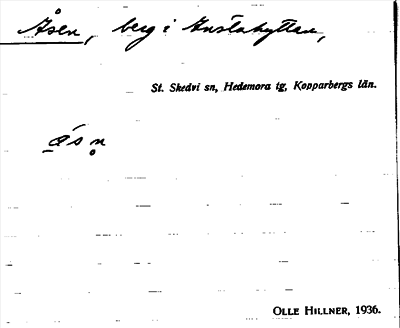 Åsen, berg i Anstahyttan,
St. Skedvi sn, Hedemora tg, Kopparbergs län.
å's n̥
OLLE HILLNER, 1936.